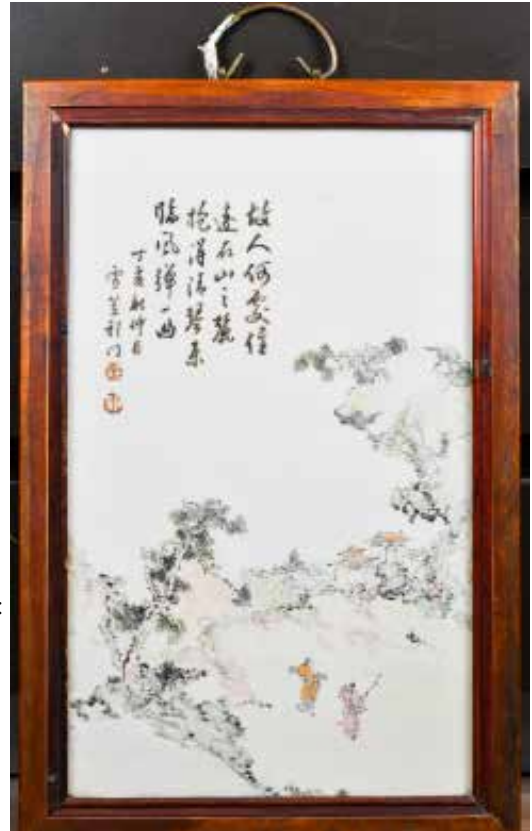 故人何處住
遠在山之麓
抱得清琴來
臨風彈一曲
丁亥秋仲月
雪笠